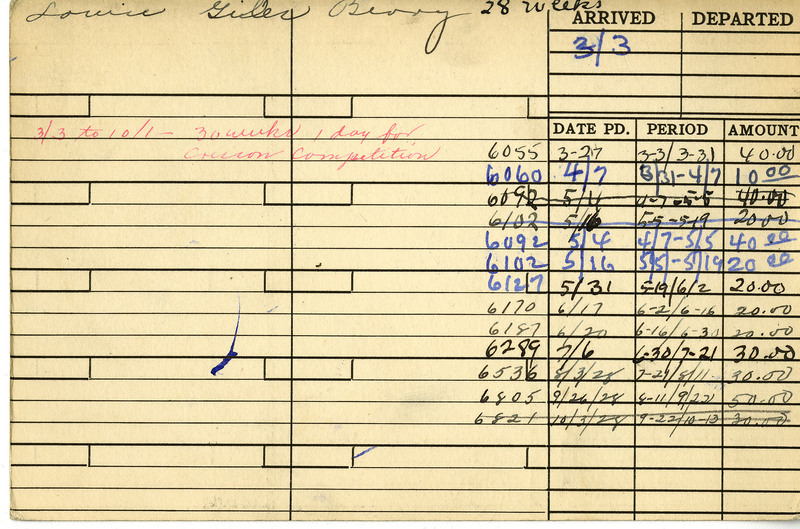 Louise Giles Berry 28 weeks
ARRIVED DEPARTED
3/3
DATE PD. PERIOD AMOUNT
3/3 to 10/1 - 30 weeks 1 day for
Competition
6055 3-27 3-3/3-31 40.00
6060 4/7 3/31-4/7 10 00
6092 5/4 4-7-5-5 40.00
6102 5/16 5-5-5-19 20.00
6092 5/4 4/7-5/5 40 00
6102 5/16 5/5-5/19 20 00
6127 5/31 5-19/6/2 20.00
6170 6/17 6-2/6-16 20.00
6187 6/20 6-16/6-30 20.00
6289 7/6 6-30/7-21 30.00
6536 8/3/28 7-21/8/11 30.00
6805 9/26/28 8-11/9/22 50.00
6821 10/3/28 9-22/10-13 30.00